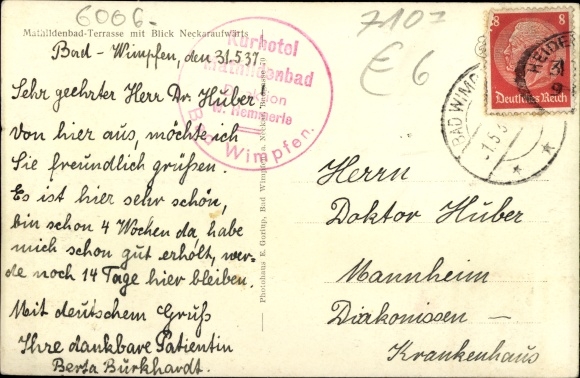 6006.-
7107
E6
Mathildenbad-Terrasse mit Blick Neckaraufwärts
Kurhotel
Mathildenbad
W. Hemmerle
Bad Wimpfen.
8 8
Deutsches Reich
BAD WIMPFEN
HEIDE
Bad-Wimpfen, den 31.5.37
Sehr geehrter Herr Dr. Huber
Von hier aus, möchte ich
Sie freundlich grüßen.
Es ist hier sehr schön,
bin schon 4 Wochen da habe
mich schon gut erholt, wer-
de noch 14 Tage hier bleiben.
Mit deutschem Gruß
Ihre dankbare Patientin
Berta Burkhardt.
Photohaus E. Gorlup, Bad Wimpfen a. Neckar
Herrn
Doktor Huber
Mannheim
Diakonissen-
Krankenhaus